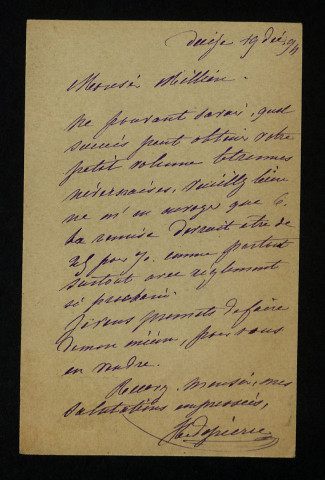 Decize 19 déc. 94
Monsr. Millien.
Ne pouvant savoir, quel
succès peut obtenir votre
petit volume Etrennes
nivernaises, veuillez bien
ne m'en envoyer que 6.
La remise devrait être de
25 par %. comme partout
surtout avec règlement
si prochain.
Je vous promets de faire
de mon mieux, pour vous
en vendre.
Recevez, Monsr., mes
Salutations empressées,